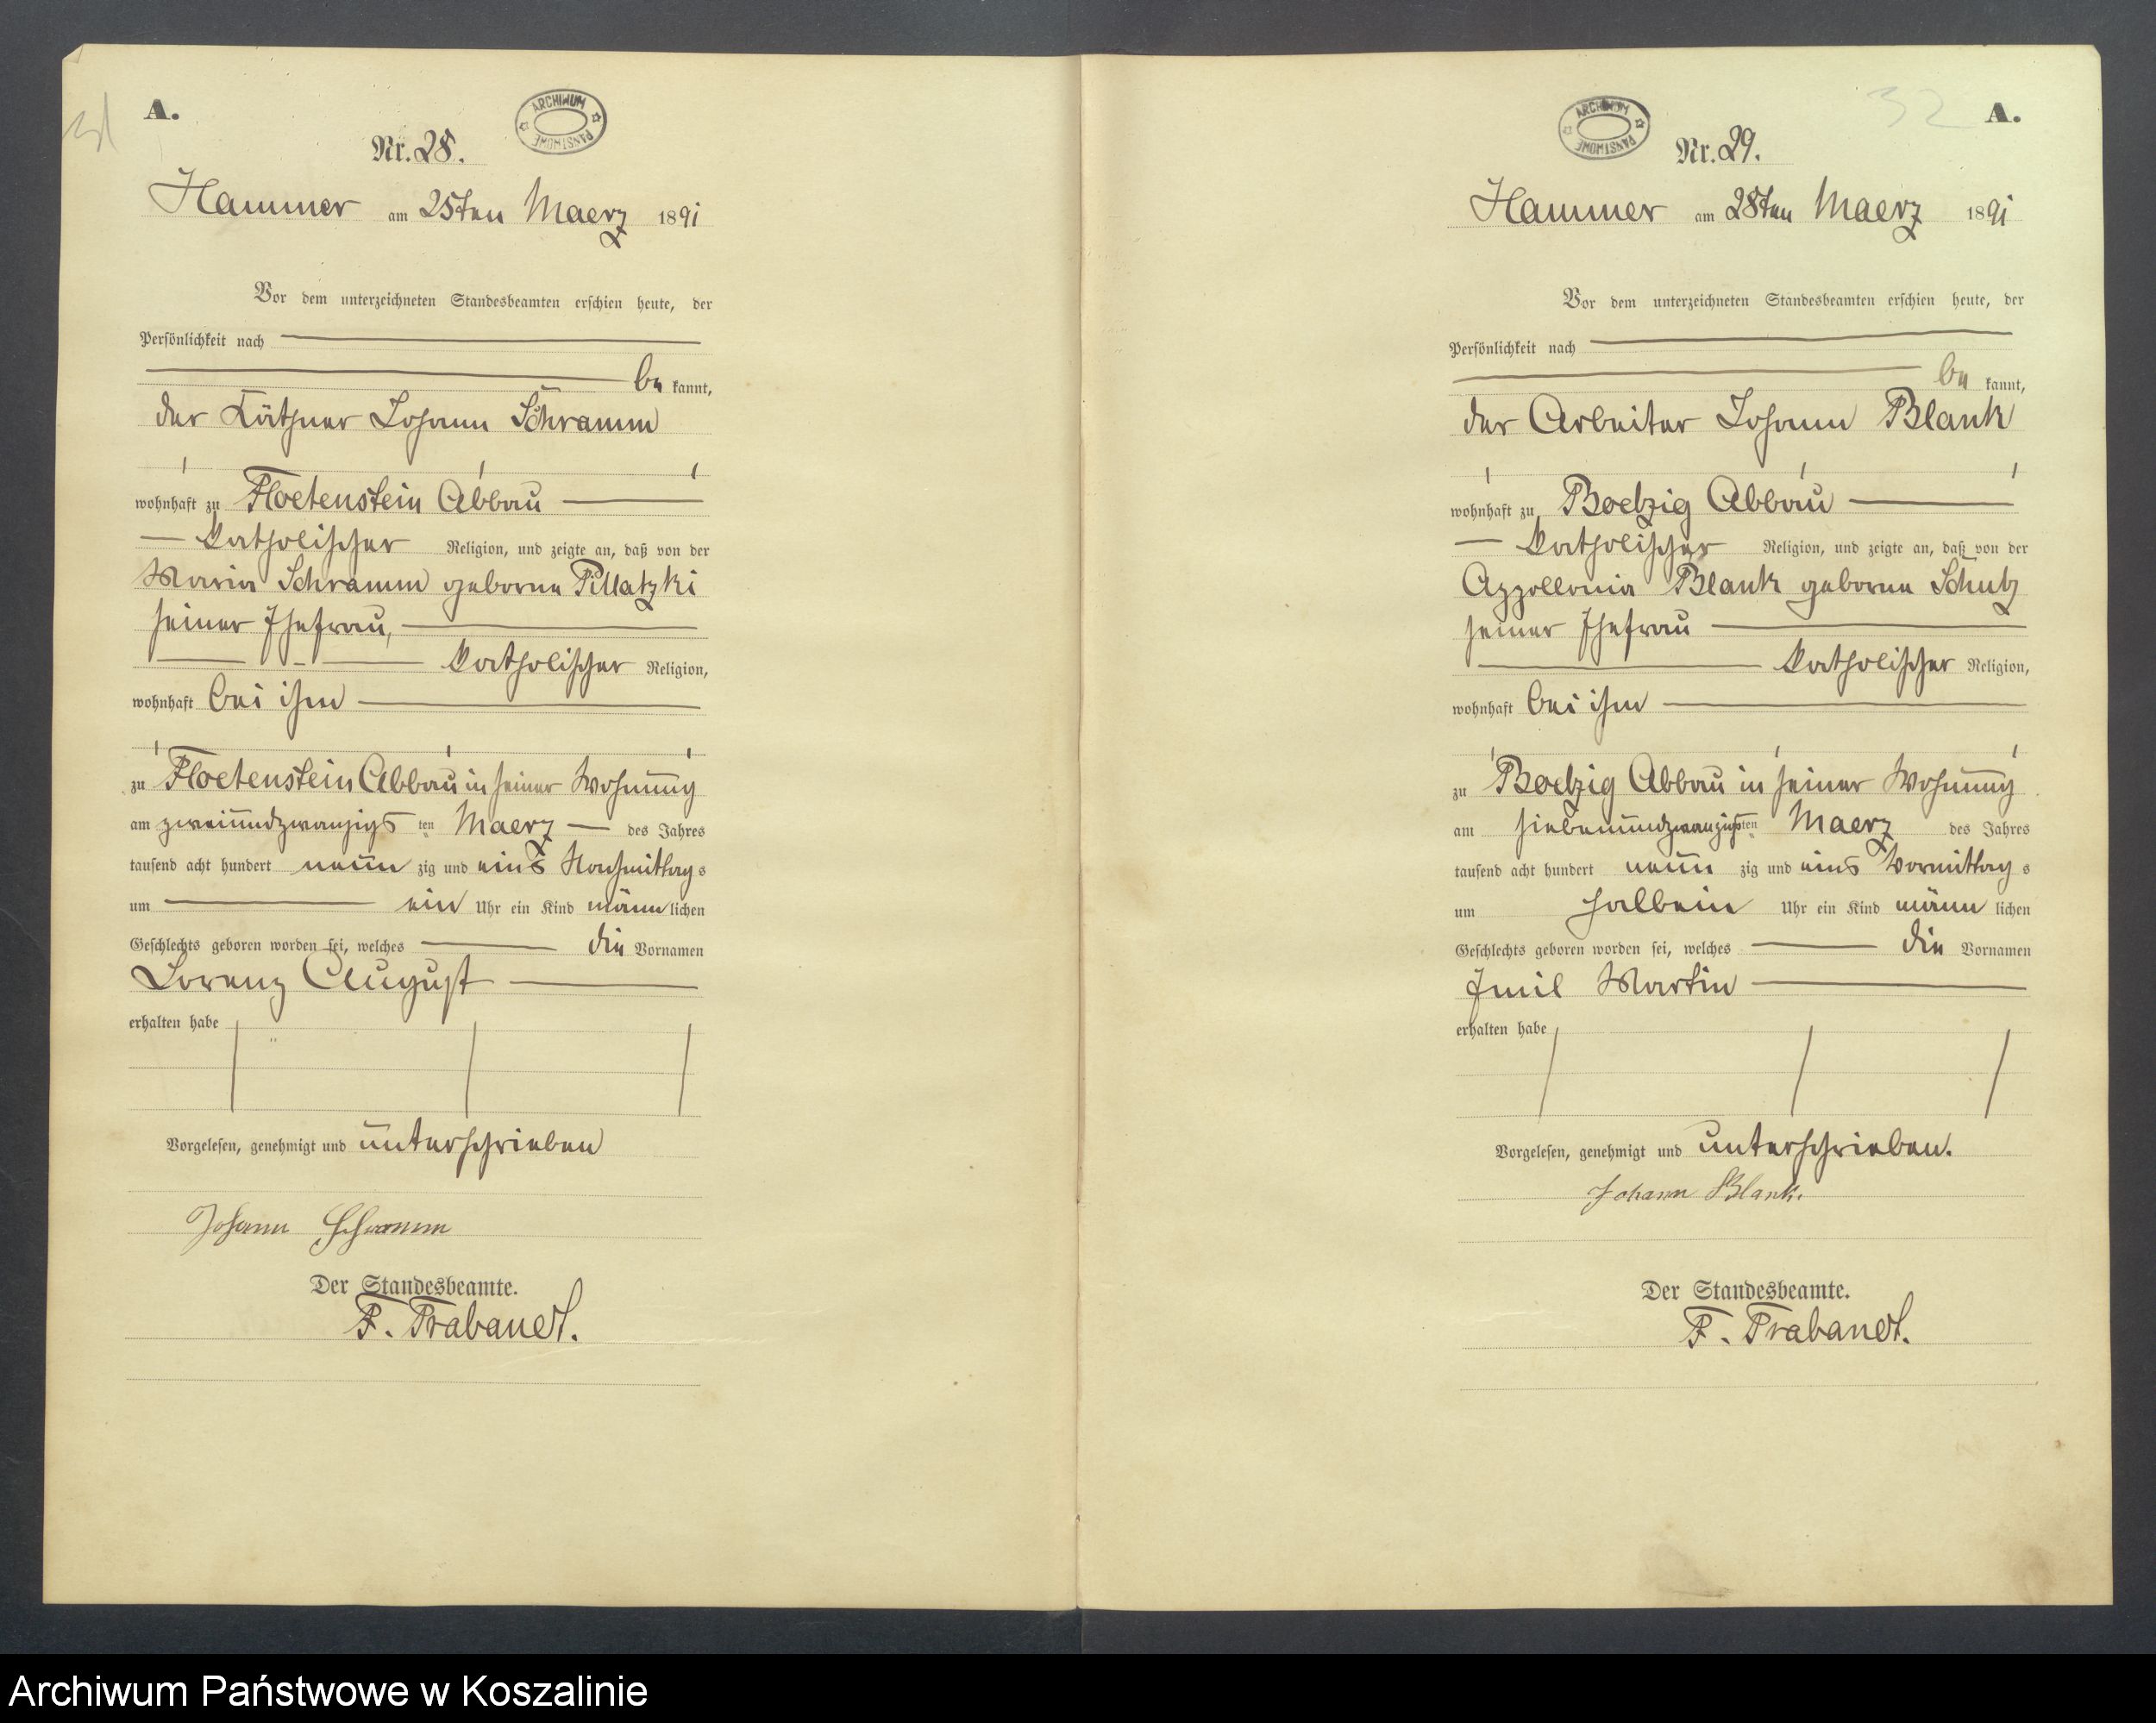 31
A.
ARCHIWUM PAŃSTWOWE
Nr. 28.
Hammer am 25ten Maerz 1891
Vor dem unterzeichneten Standesbeamten erschien heute, der
Persönlichkeit nach
be kannt,
der Käthner Johann Schramm
wohnhaft zu Floetenstein Abbau
katholischer Religion, und zeigte an, daß von der
Maria Schramm geborne Pillatzki
seiner Ehefrau,
katholischer Religion,
wohnhaft bei ihm
zu Floetenstein Abbau in seiner Wohnung
am zweiundzwanzigs ten Maerz des Jahres
tausend acht hundert neun zig und eins Nachmittag s
um ein Uhr ein Kind männ lichen
Geschlechts geboren worden sei, welches die Vornamen
Lorenz August
erhalten habe
Vorgelesen, genehmigt und unterschrieben
Johann Schramm
Der Standesbeamte.
F. Trabandt.
32
A.
ARCHIWUM PAŃSTWOWE
Nr. 29.
Hammer am 28ten Maerz 1891
Vor dem unterzeichneten Standesbeamten erschien heute, der
Persönlichkeit nach
be kannt,
der Arbeiter Johann Blank
wohnhaft zu Boelzig Abbau
katholischer Religion, und zeigte an, daß von der
Appollonia Blank geborne Schulz
seiner Ehefrau
katholischer Religion,
wohnhaft bei ihm
zu Boelzig Abbau in seiner Wohnung
am siebenundzwanzigsten Maerz des Jahres
tausend acht hundert neun zig und eins Vormittag s
um halbein Uhr ein Kind männ lichen
Geschlechts geboren worden sei, welches die Vornamen
Emil Martin
erhalten habe
Vorgelesen, genehmigt und unterschrieben.
Johann Blank.
Der Standesbeamte.
F. Trabandt.
Archiwum Państwowe w Koszalinie